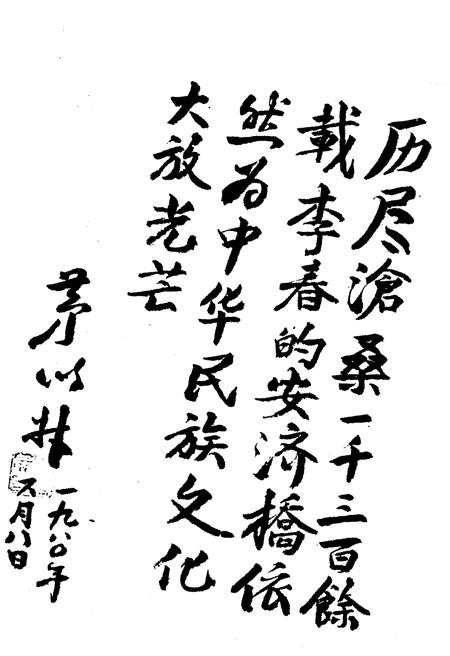 历尽滄桑一千三百餘
載李春的安济橋依
然为中华民族文化
大放光芒
茅以升
一九八〇年
六月八日